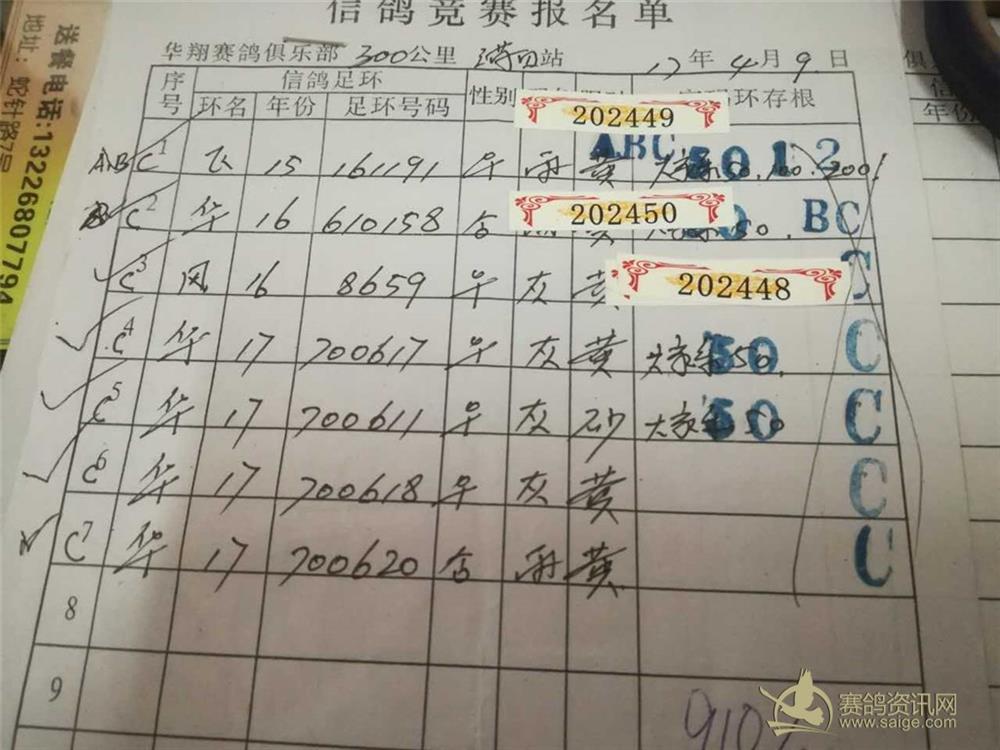 信鸽竞赛报名单
华翔赛鸽俱乐部 300公里 站 17年4月9日
序号 信鸽足环 性别 环存根
环名 年份 足环号码
202449
ABC 1 飞 15 161191 雨 黄 大家乐50.100.200. ABC 50 1 2
202450
B C 2 华 16 610158 50. BC
C 3 风 16 8659 灰 黄 202448
C 4 华 17 700617 灰 黄 大家乐50. 50 C
C 5 华 17 700611 灰 砂 大家乐50 50 C
C 6 华 17 700618 灰 黄 C
C 7 华 17 700620 雨 黄 C
8
9
910
送餐电话:13226807794
地址: 蛇针路7号
年份
赛鸽资讯网
www.saige.com